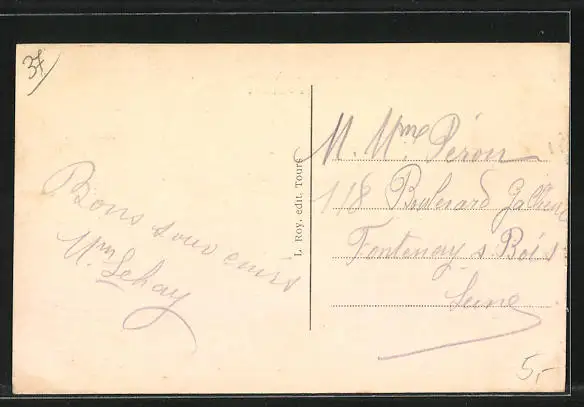 37
Bons souvenirs
Mm Lehay
L. Roy, edit. Tours
M. Mme Péron
118 Boulevard Gallieni
Fontenay s Bois
Seine
5,-